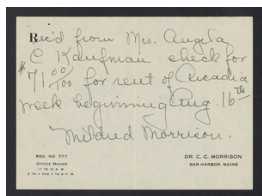 Rec'd from Mrs. Angela
C Kaufman check for
$71 00/100 for rent of Arcadia
week beginning Aug. 16th
Mildred Morrison.
REG. NO. 777
OFFICE HOURS
DR. C. C. MORRISON
BAR HARBOR, MAINE